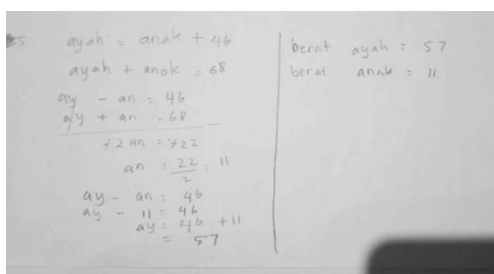 ayah = anak + 46
ayah + anak = 68
ay - an = 46
ay + an = 68
+2 an = +22
an = 22/2 = 11
ay - an = 46
ay - 11 = 46
ay = 46 + 11
= 57
berat ayah = 57
berat anak = 11